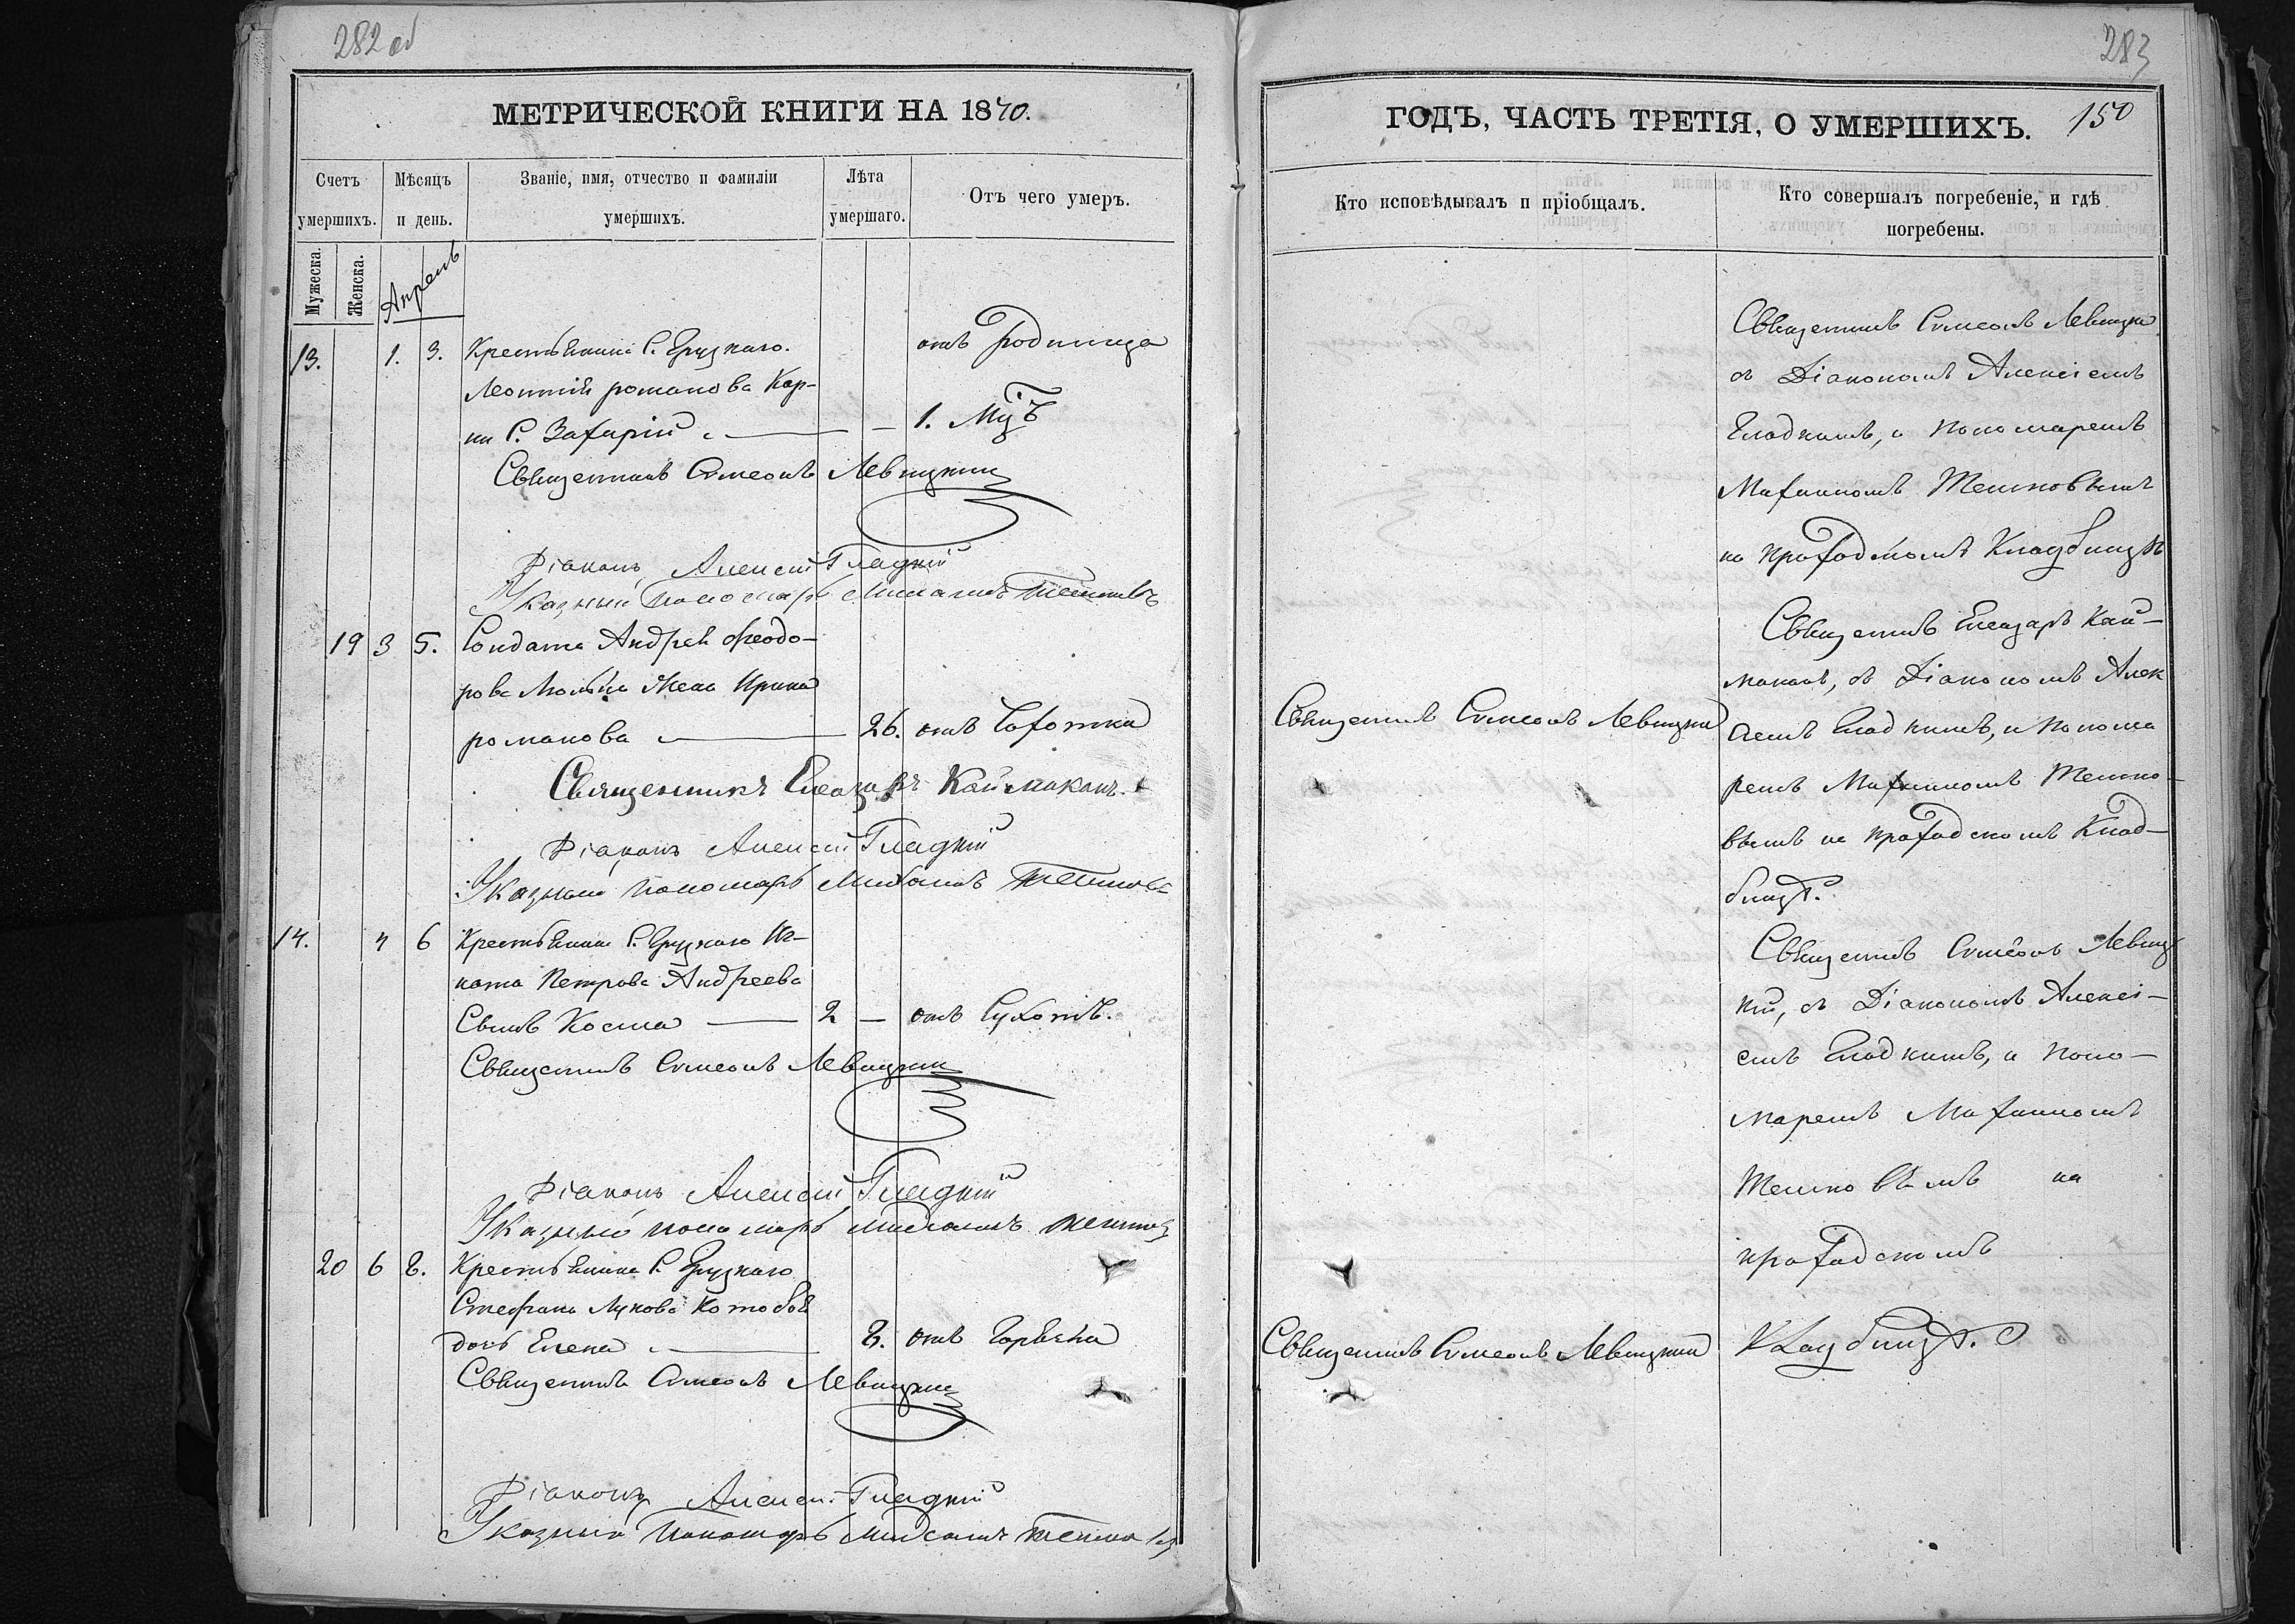 282 об
МЕТРИЧЕСКОЙ КНИГИ НА 1870.
Счетъ умершихъ.
Мѣсяцъ и день.
Званіе, имя, отчество и фамиліи умершихъ.
Лѣта умершаго.
Отъ чего умер.
Мужеска.
Женска.
Апрель
13. 1. 3. Крестьянина С. Грузкаго. отъ Родимца
Леонтій романова
С. Захарій — 1. М
Священникъ Симеонъ Левицкий
Діаконъ Алексій Гладкій
Указный пономарь Михаилъ
19 3 5. Солдата Андрей Феодо-
рова жена Ирина
романова — 26. отъ Чахотки
Священникъ Елеазаръ Каймаканъ.
Діаконъ Алексій Гладкій
Указный пономарь Михаилъ
14. 4 6 Крестьянина С. Грузкаго Иг-
ната Петрова Андреева
Сынъ Косма — 2 — отъ Сухотъ.
Священникъ Симеонъ Левицкий
Діаконъ Алексій Гладкій
Указный пономарь Михаилъ
20 6 8. Крестьянина С. Грузкаго
Стефана Лукова
дочь Елена — 8. отъ
Священникъ Симеонъ Левицкий
Діаконъ Алексій Гладкій
Указный Пономарь Михаилъ
283
ГОДЪ, ЧАСТЬ ТРЕТІЯ, О УМЕРШИХЪ. 150
Кто исповѣдывалъ и пріобщалъ.
Кто совершалъ погребеніе, и гдѣ погребены.
Священникъ Симеонъ Левицкий
съ Діакономъ Алексіемъ
Гладкимъ, и пономаремъ
Михаиломъ
на приходскомъ Кладбищѣ
Священникъ Елеазаръ Кай-
маканъ, съ Діакономъ Алек
Священникъ Симеонъ Левицкий
сіемъ Гладкимъ, и понома
ремъ Михаиломъ
вымъ на приходскомъ Клад-
бищѣ.
Священникъ Симеонъ Левиц
кій, съ Діакономъ Алексі-
емъ Гладкимъ, и поно-
маремъ Михаиломъ
на
приходскомъ
Священникъ Симеонъ Левицкий
Кладбищѣ.